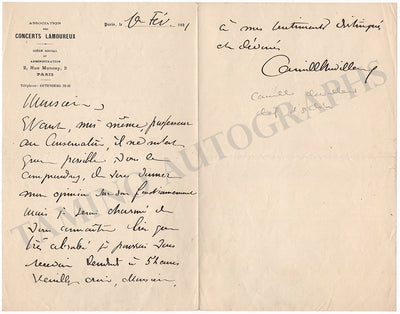 ASSOCIATION
DES
CONCERTS LAMOUREUX
SIÈGE SOCIAL
ET
ADMINISTRATION
2, Rue Moncey, 2
PARIS
Téléphone :
Paris, le Fév. 191
Monsieur,
Etant, moi même, professeur
au Conservatoire, il ne m'est
guère possible, vous le
comprendrez, de vous donner
mon opinion sur son fonctionnement
mais je serai charmé de
vous connaître bien que
très absorbé je pourrai vous
recevoir à 5 heures
Veuillez croire, Monsieur,
à mes sentiments distingués
et dévoués
Camille Chevillard
Camille Chevillard
TAMINO AUTOGRAPHS